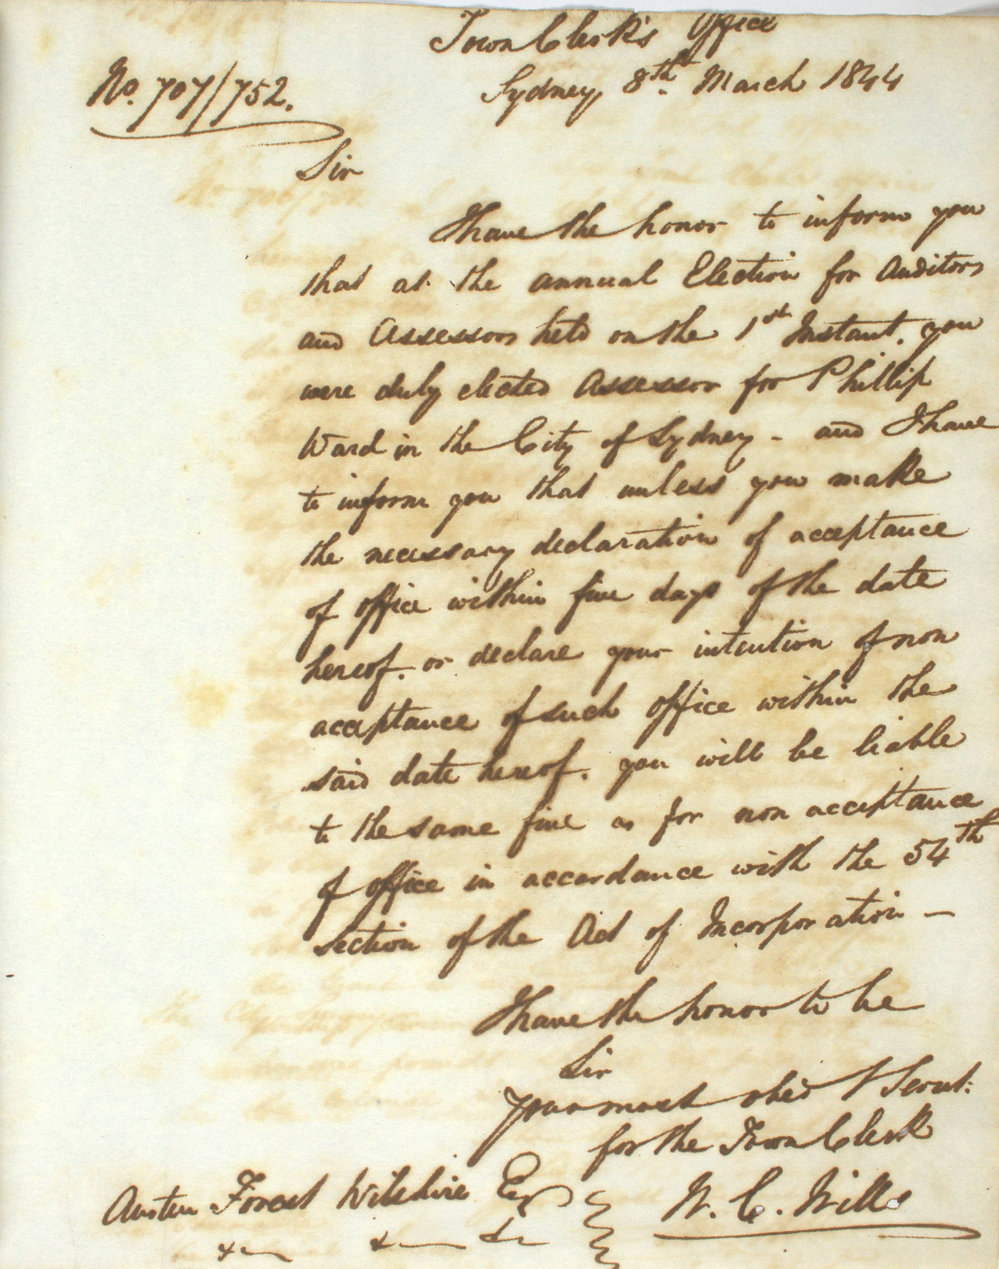 Town Clerk's Office
Sydney, 8th. March 1844
No. 707/752.
Sir
I have the honor to inform you
that at the annual Election for Auditors
and Assessors held on the 1st Instant. you
were duly elected Assessor for Phillip
Ward in the City of Sydney - and I have
to inform you that unless you make
the necessary declaration of acceptance
of office within five days of the date
hereof. or declare your intention of non
acceptance of such office within the
said date hereof. you will be liable
to the same fine as for non acceptance
of office in accordance with the 54th
Section of the Act of Incorporation -
I have the honor to be
Sir
Your most obed t Servt.
for the Town Clerk
W. C. Wills
Austen Forest Wilshire Esq
&c &c &c